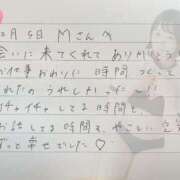 2月5日 Mさんへ
会いに来てくれてありがとう
お仕事おわりに時間つくって
くれたのうれしかった
イチャイチャしてる時間も、
お話してる時間も、やさしい
ずっと幸せでした♡